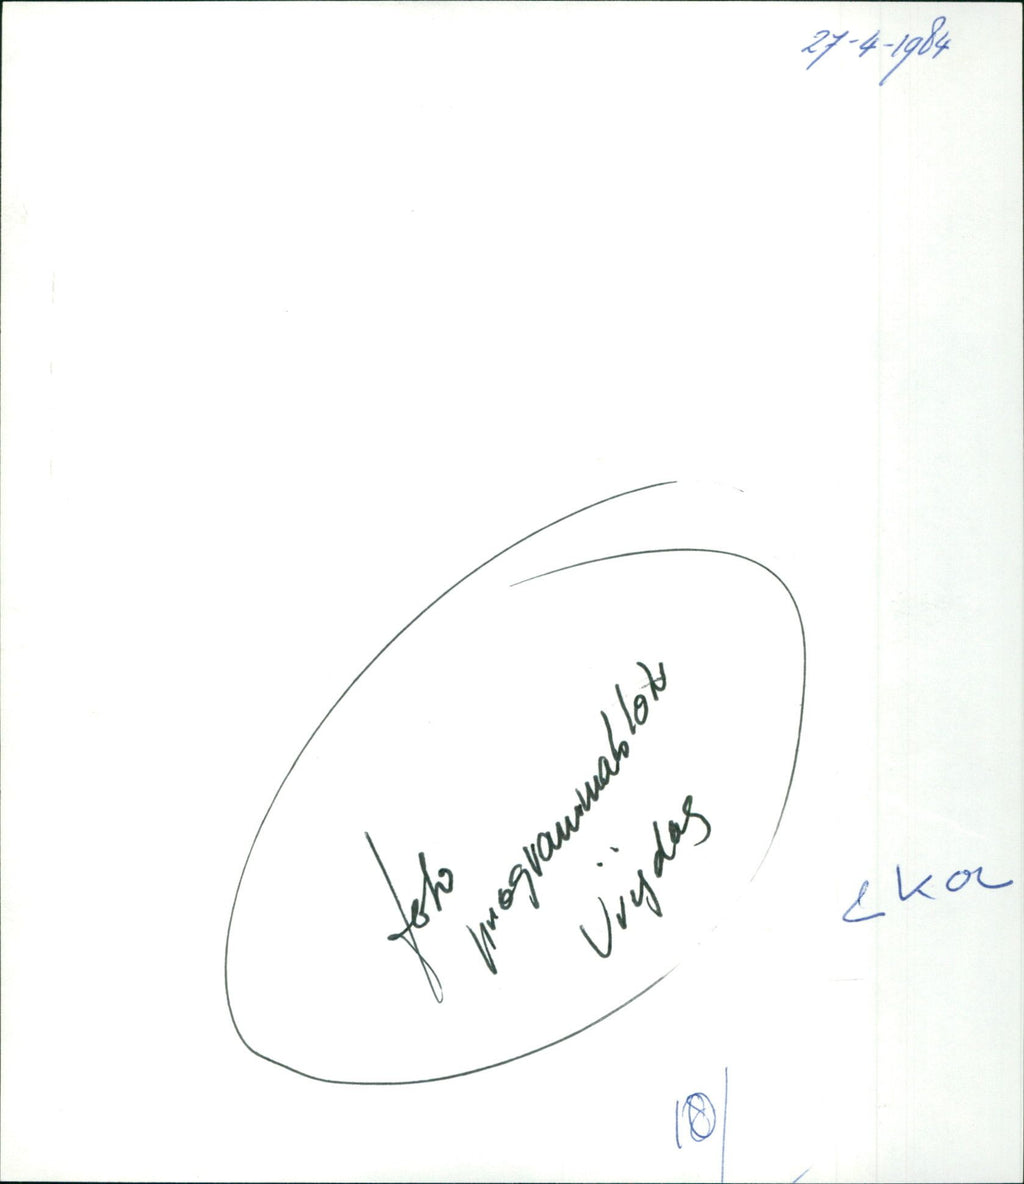 27-4-1984
foto
programmablok
Vrijdag
18